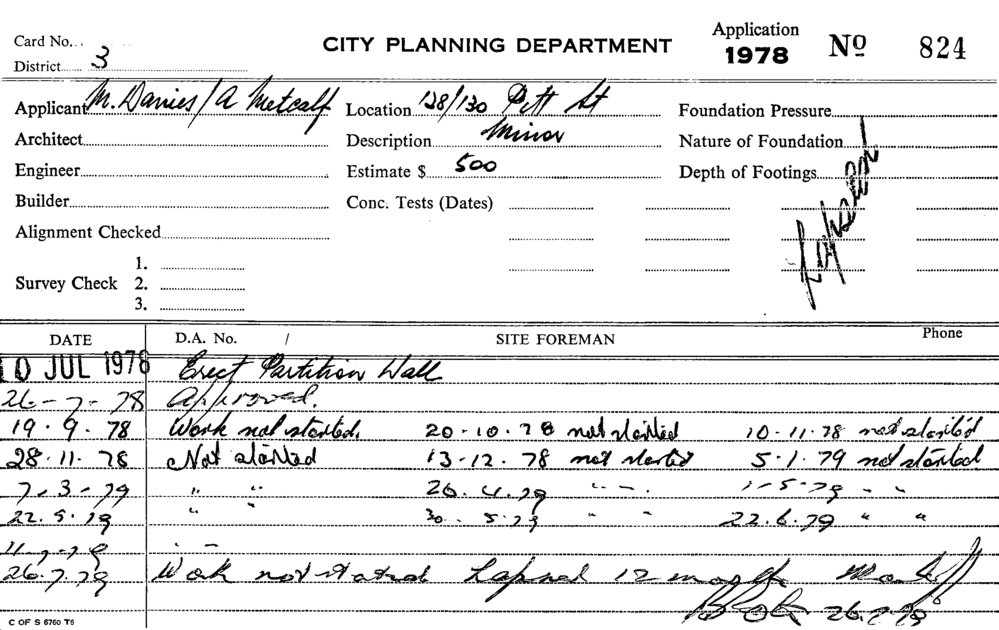 Card No.
District 3
CITY PLANNING DEPARTMENT
Application
1978 No 824
Applicant M. Davies / A Metcalf
Location 128/130 Pitt St
Foundation Pressure
Architect
Description Minor
Nature of Foundation
Engineer
Estimate $ 500
Depth of Footings
Builder
Conc. Tests (Dates)
Lapsed
Alignment Checked
Survey Check 1.
2.
3.
DATE D.A. No. / SITE FOREMAN Phone
10 JUL 1978 Erect Partition Wall
26-7-78 Approved.
19.9.78 Work not started. 20-10.78 not started 10-11.78 not started
28.11.78 Not started 13-12.78 not started 5.1.79 not started
7-3-79 " " 26.4.79 " - . 1-5-79 " "
22.5.79 " " 30. 5.79 " " 22.6.79 " "
11-7-79 . -
26.7.79 Work not started Lapsed 12 months
26.7.79
C OF S 6760 T6